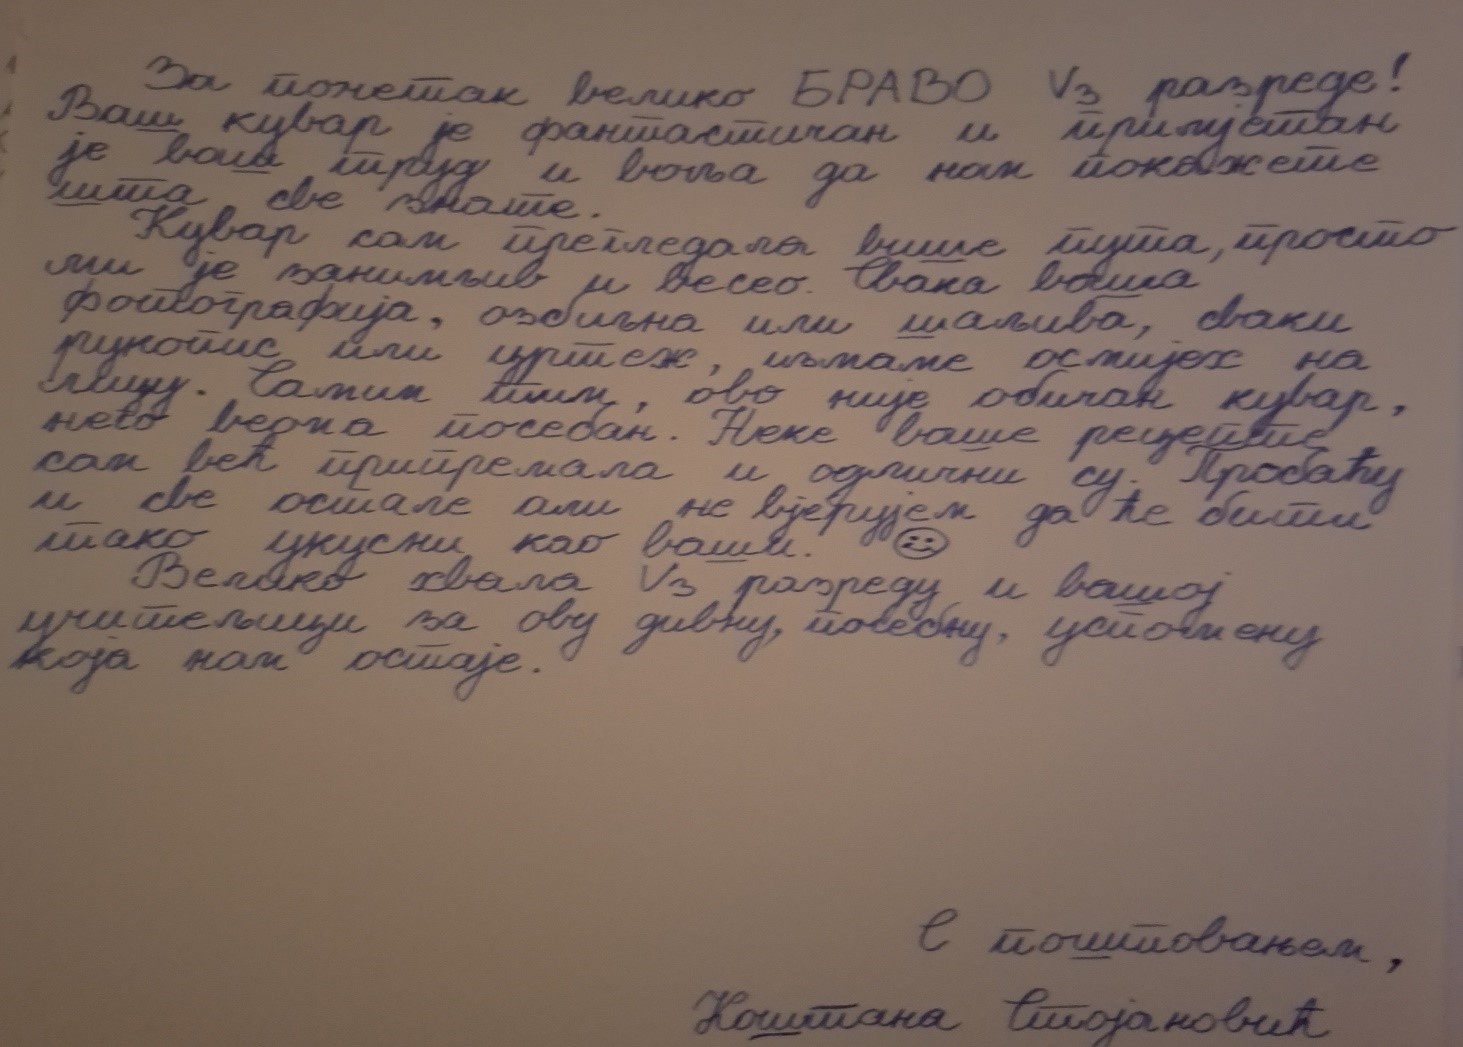 За почетак велико БРАВО V₃ разреде!
Ваш кувар је фантастичан и примјетан
је ваш труд и воља да нам покажете
шта све знате.
Кувар сам прегледала више пута, просто
ми је занимљив и весео. Свака ваша
фотографија, озбиљна или шаљива, сваки
рукопис или цртеж, измаме осмијех на
лицу. Самим тим, ово није обичан кувар,
него веома посебан. Неке ваше рецепте
сам већ припремала и одлични су. Пробаћу
и све остале али не вјерујем да ће бити
тако укусни као ваши. ☺
Велико хвала V₃ разреду и вашој
учитељици за ову дивну, посебну, успомену
која нам остаје.
С поштовањем,
Коштана Стојановић